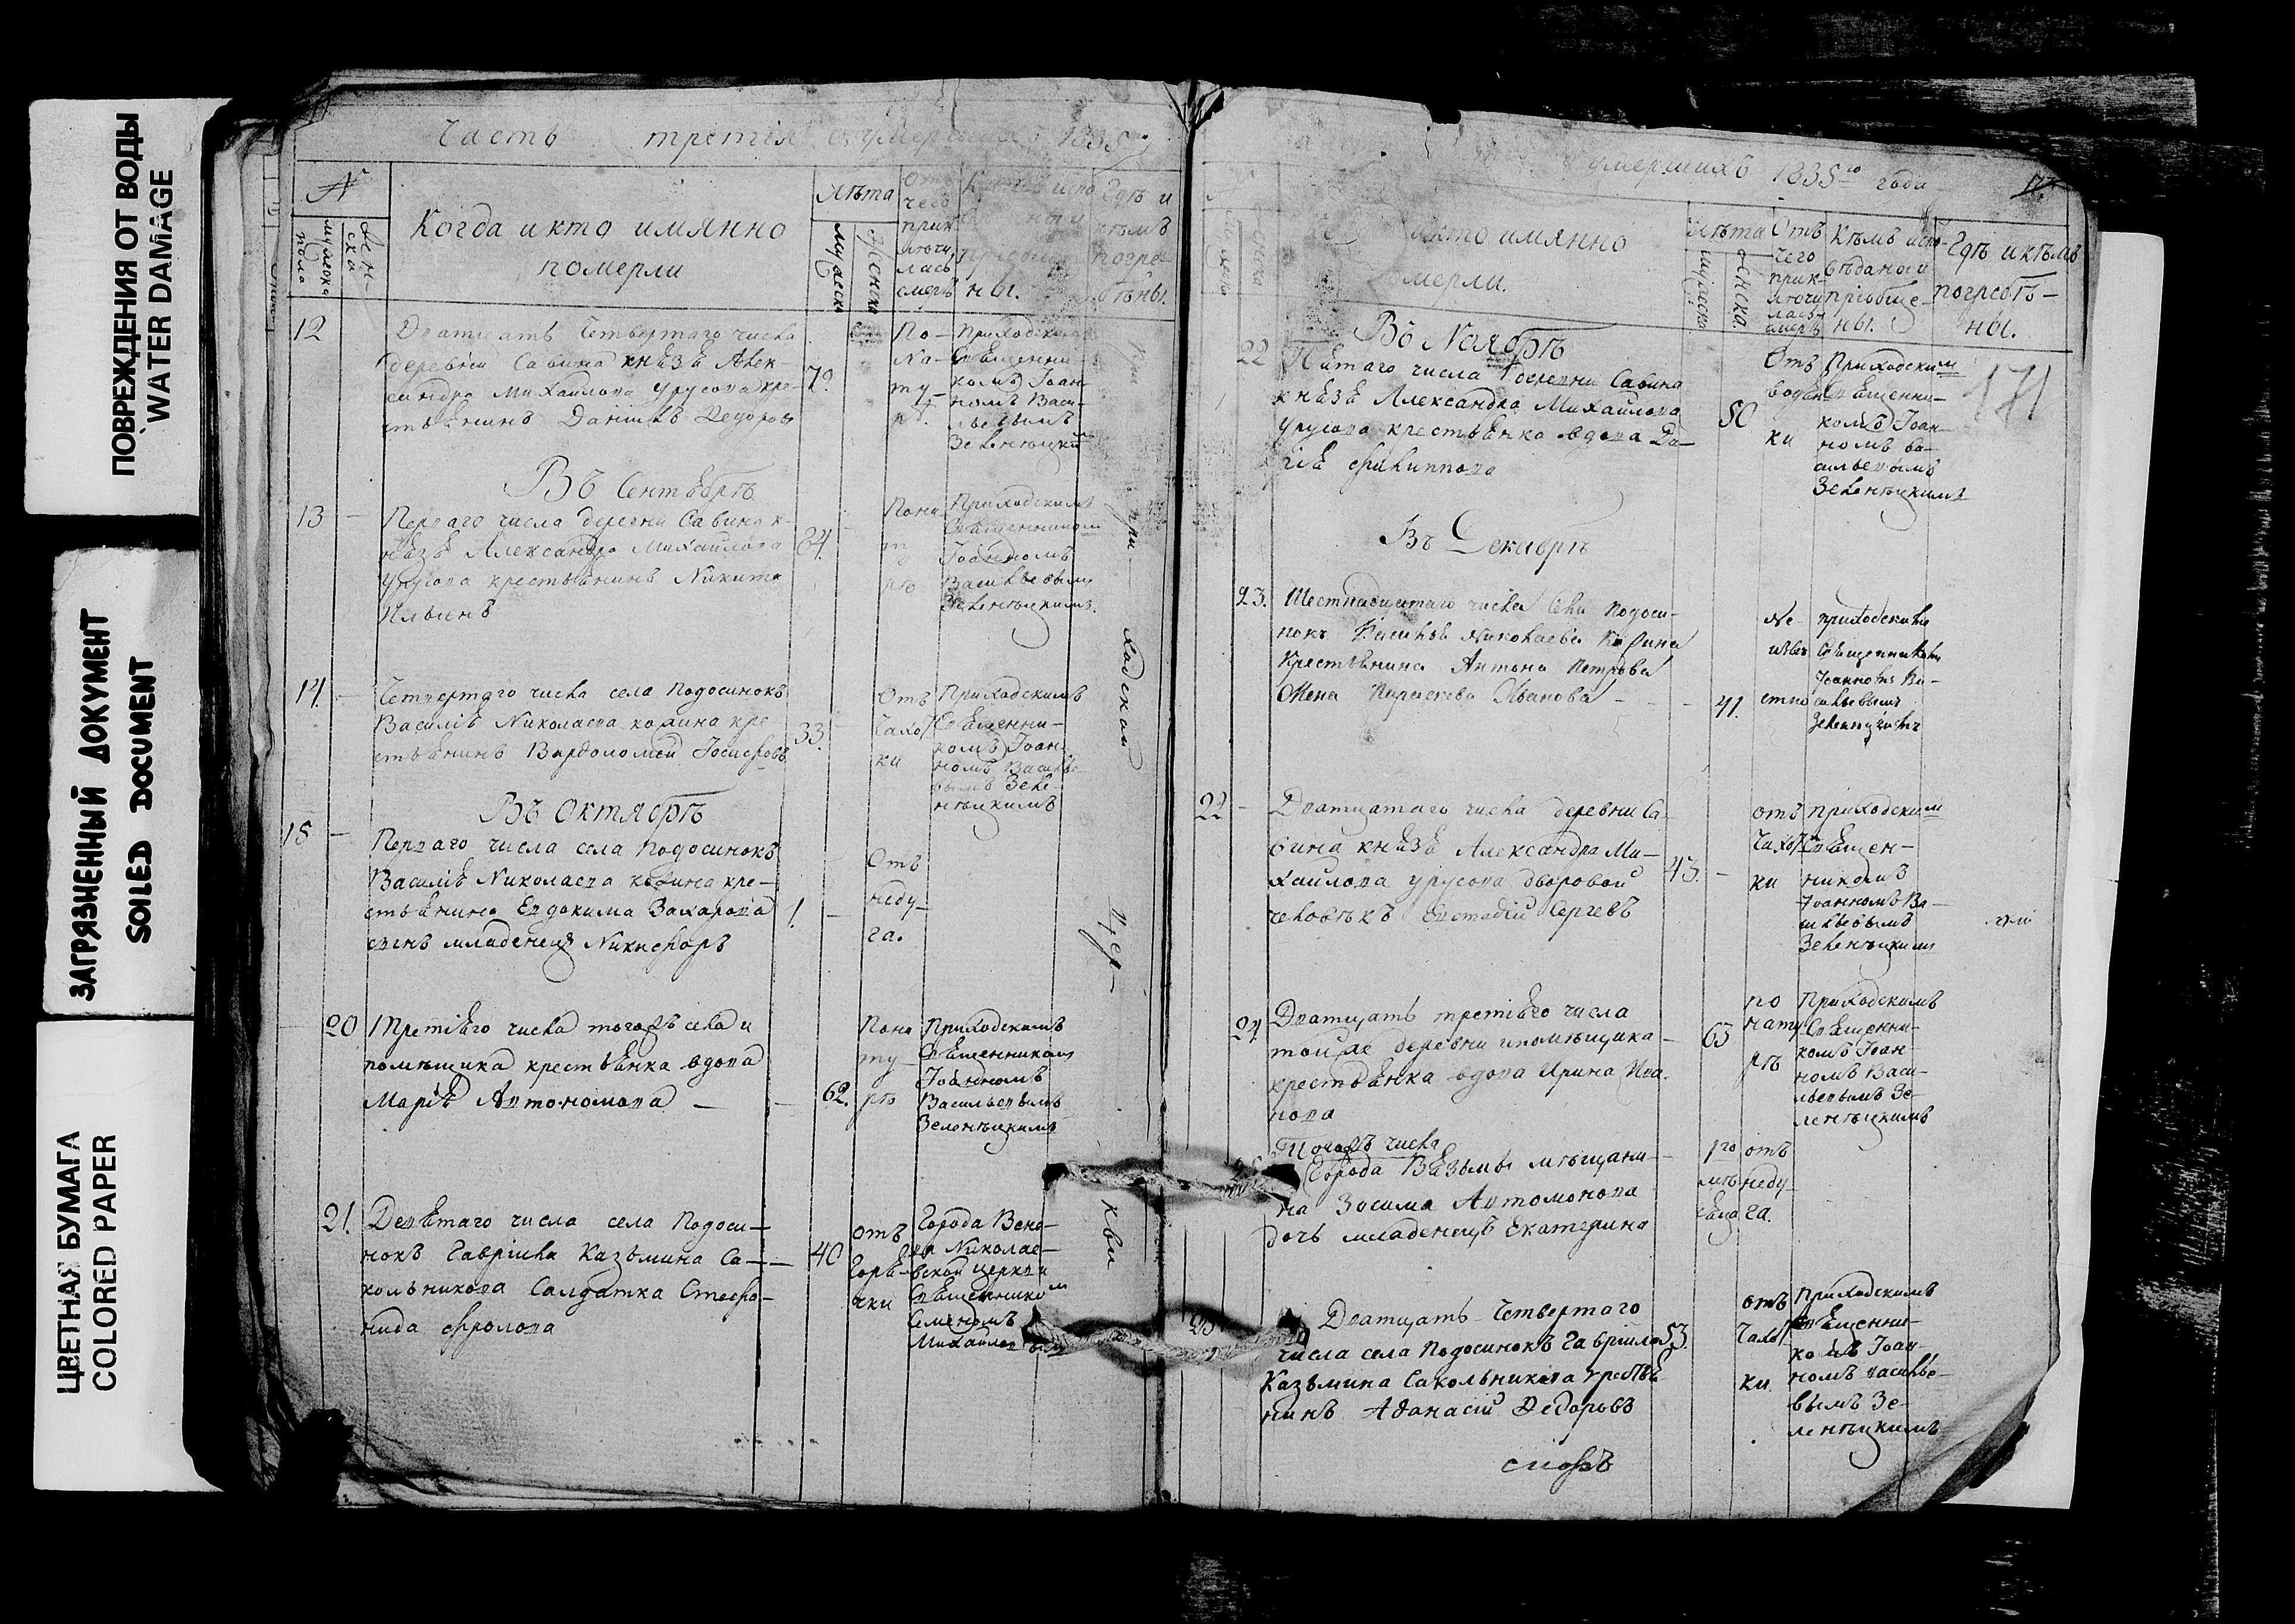 ПОВРЕЖДЕНИЯ ОТ ВОДЫ
WATER DAMAGE
ЗАГРЯЗНЕННЫЙ ДОКУМЕНТ
SOILED DOCUMENT
ЦВЕТНАЯ БУМАГА
COLORED PAPER
Часть третія 1835
№
мужеска пола
женска
Когда и кто имянно
померли
лѣта
мужеска
женска
Отъ
чего
прик
лючи
лась
смерть
ны.
Гдѣ и
кѣмъ
погре
бѣны.
12
Дватцать Четвертаго числа
деревни Савина князя Алек-
сандра Михайлова Урусова кре-
стьянинъ Даніилъ Ѳедоровъ
70.
По-
На-
ту-
рѣ.
Приходскимъ
Священни-
комъ Іоан-
номъ Васи-
льевымъ
Зеленецкимъ
Въ Сентябрѣ
13
Перваго числа деревни Савина к-
нязя Александра Михайлова
Урусова крестьянинъ Никита
Ильинъ
64.
Пона
ту
рѣ
Приходскимъ
Священникомъ
Іоанномъ
Васильевымъ
Зеленецкимъ.
14
Четвертаго числа села Подосинокъ
Василія Николаева кре-
стьянинъ Варѳоломей Іосифовъ
33.
Отъ
Чахот
ки
Приходскимъ
Священни-
комъ Іоан-
номъ Василье-
вымъ Зеле-
нецкимъ
Въ Октябрѣ
15
Перваго числа села Подосинокъ
Василія Николаева кре-
стьянина Евдокима Захарова
сынъ младенецъ Никифоръ
1
Отъ
неду-
га.
20
Третьяго числа тогожъ села и
помѣщика крестьянка вдова
Марія Автономова
62.
Пона
ту-
рѣ
Приходскимъ
Священникомъ
Іоанномъ
Васильевымъ
Зеленецкимъ
21.
Девятаго числа села Подоси-
нокъ Гавріила Казьмина Са-
кольникова Салдатка Стефа-
нида Фролова
40
отъ
Горя-
чки
Города
Николае-
вской церкви
Священникомъ
Семеномъ
при
ходской
цер-
кви
умершихъ 1835го года
кто имянно
мерли.
лѣта
мужеска
женска.
Отъ
чего
прик-
лючи
лась
смерть
Кѣмъ испо-
вѣданы и
пріобще-
ны.
Гдѣ и кѣмъ
погребѣ-
ны.
171
Въ Ноябрѣ
22
Пятаго числа деревни Савина
князя Александра Михайлова
Урусова крестьянка вдова Да-
рія Филиппова
50
Отъ
водян
ки
Приходскимъ
Священни-
комъ Іоан-
номъ Ва-
сильевымъ
Зеленецкимъ
Въ Декабрѣ
23.
Шестнадцатаго числа Села Подоси-
нокъ Василья Николаева
Крестьянина Антона Петрова
Жена Параскева Иванова
41.
Не
извѣ
стно
приходскимъ
Священникомъ
Іоанномъ Ва-
сильевымъ
Зеленецкимъ
22
Дватцатаго числа деревни Са-
вина князя Александра Ми-
хайлова Урусова дворовой
человѣкъ Евстафій Сергѣевъ
43.
отъ
Чахот
ки
Приходскимъ
Священ-
никомъ
Іоанномъ Ва-
сильевымъ
Зеленецкимъ
24
Дватцать третьяго числа
тойже деревни и помѣщика
крестьянка вдова Ирина Ива-
нова
63
по
нату
рѣ
Приходскимъ
Священни-
комъ Іоан-
номъ Васи-
льевымъ Зе-
ленецкимъ
Тогожъ числа
Города Вязьмы мѣщани-
на Зосима Автомонова
дочь младенецъ Екатерина
отъ
неду
га.
Дватцать Четвертаго
числа села Подосинокъ Гавріила
Казьмина Сакольникова крестья
нинъ Аѳанасій Ѳедоровъ
53.
отъ
Чахот
ки
Приходскимъ
Священни-
комъ Іоан-
номъ Василье-
вымъ Зе-
ленецкимъ